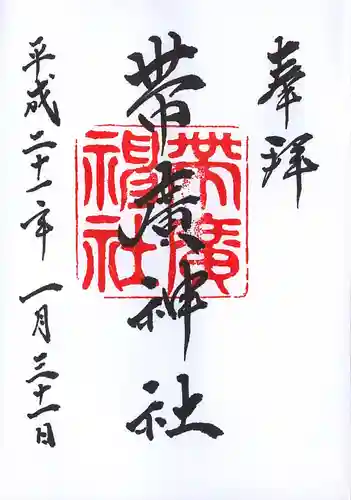 奉拝
帯廣神社
帯廣神社
平成二十一年 一月三十一日